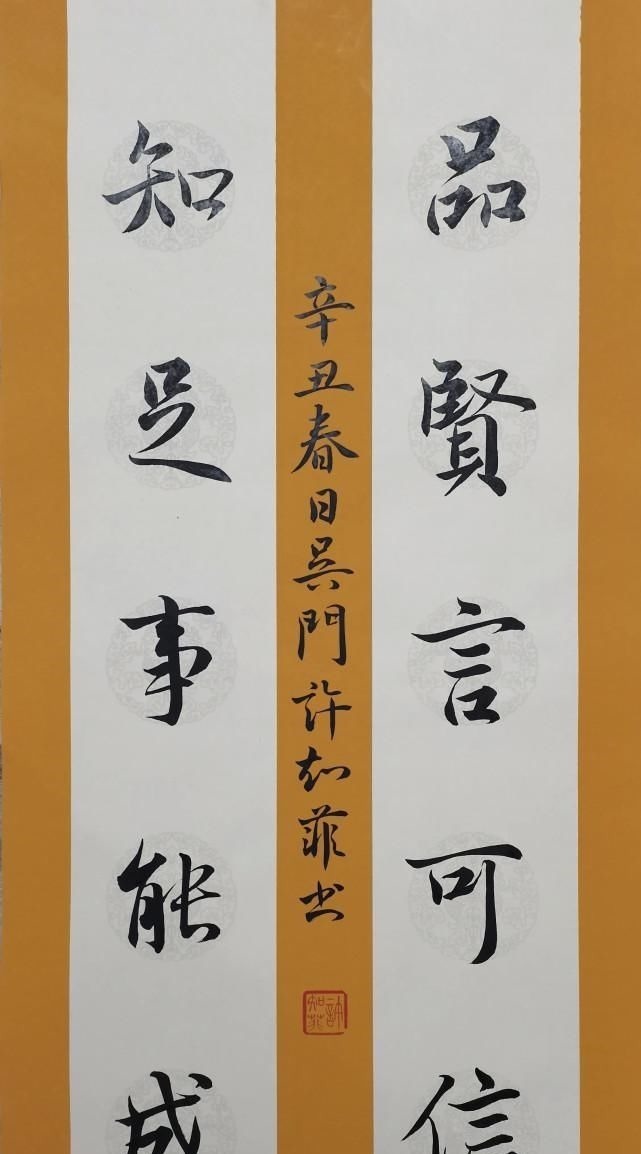 品賢言可信
辛丑春日吳門許知菲书
知足事能成
許知菲